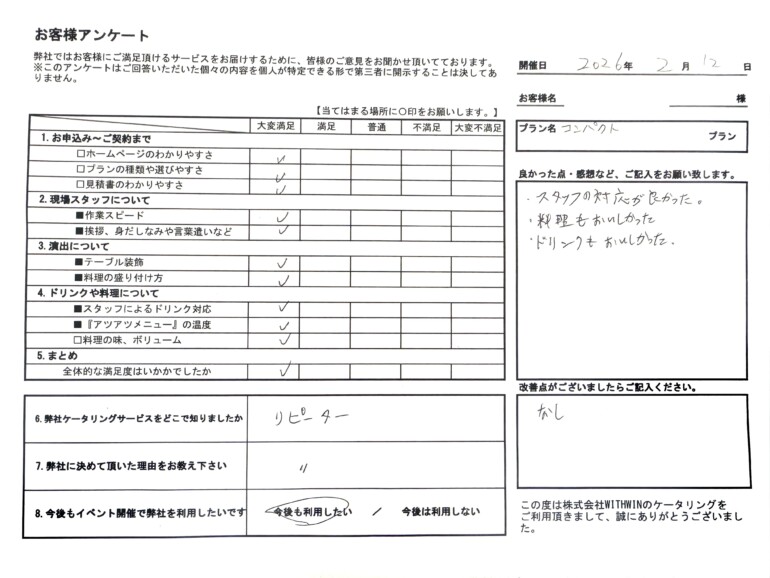 お客様アンケート
弊社ではお客様にご満足頂けるサービスをお届けするために、皆様のご意見をお聞かせ頂いてております。
※このアンケートはご回答いただいた個々の内容を個人が特定できる形で第三者に開示することは決してあ
りません。
開催日 2026年 2月 12日
お客様名 様
プラン名 コンパクト プラン
【当てはまる場所に〇印をお願いします。】
大変満足 満足 普通 不満足 大変不満足
1. お申込み～ご契約まで
□ホームページのわかりやすさ ✓
□プランの種類や選びやすさ ✓
□見積書のわかりやすさ ✓
2. 現場スタッフについて
■作業スピード ✓
■挨拶、身だしなみや言葉遣いなど ✓
3. 演出について
■テーブル装飾 ✓
■料理の盛り付け方 ✓
4. ドリンクや料理について
■スタッフによるドリンク対応 ✓
■『アツアツメニュー』の温度 ✓
□料理の味、ボリューム ✓
5. まとめ
全体的な満足度はいかかでしたか ✓
6. 弊社ケータリングサービスをどこで知りましたか リピーター
7. 弊社に決めて頂いた理由をお教え下さい 〃
8. 今後もイベント開催で弊社を利用したいです 今後も利用したい / 今後は利用しない
良かった点・感想など、ご記入をお願い致します。
・スタッフの対応が良かった。
・料理もおいしかった
・ドリンクもおいしかった.
改善点がございましたらご記入ください。
なし
この度は株式会社WITHWINのケータリングを
ご利用頂きまして、誠にありがとうございまし
た。